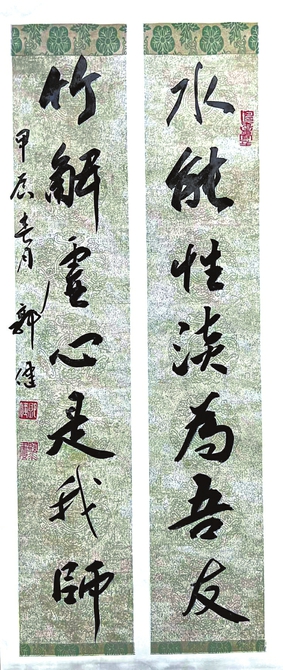 水能性淡為吾友
竹解虛心是我師
甲辰春月郭健